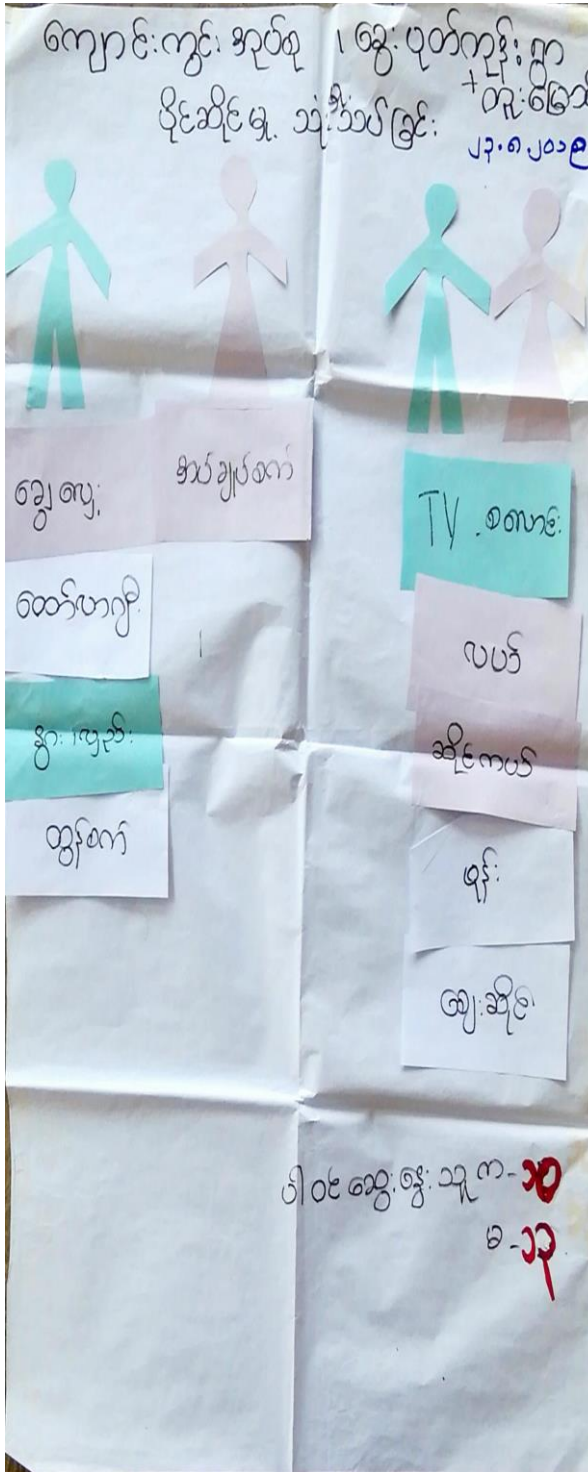 ကျောင်းကွင်း အုပ်စု ၊ ခွေးပုတ်ကုန်း ရွာ
+ တူးမြောင်
ပိုင်ဆိုင်မှု သုံးသပ်ခြင်း
၂၃.၈.၂၀၁၉
ချွေလှေ့
အပ်ချုပ်စက်
ထော်လာဂျီ
နွား၊ လှည်း
ထွန်စက်
TV - စလောင်း
လယ်
ဆိုင်ကယ်
ဖုန်း
ဈေးဆိုင်
ပါဝင်ဆွေးနွေးသူ က - ၁၀
မ - ၁၃